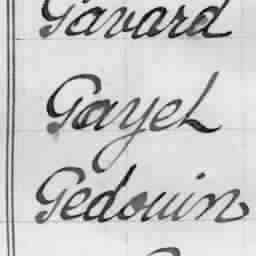 Gavard
Gayel
Gedouin